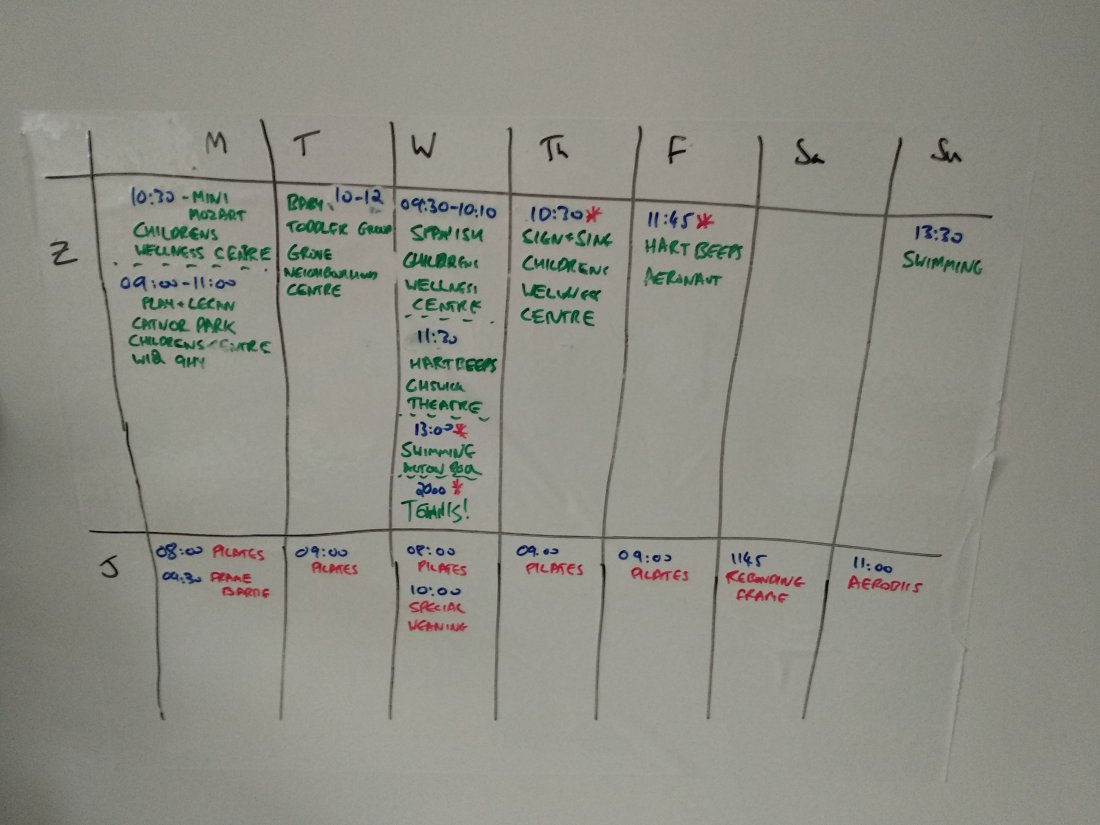 M T W Th F Sa Su
Z
10:30 - MINI
MOZART
CHILDRENS
WELLNESS CENTRE
09:00-11:00
PLAY + LEARN
PARK
CHILDRENS CENTRE
9HY
BABY 10-12
TODDLER GROUP
GROVE
NEIGHBOURHOOD
CENTRE
09:30-10:10
SPANISH
CHILDRENS
WELLNESS
CENTRE
11:30
HARTBEEPS
THEATRE
13:00*
SWIMMING
ACTON POOL
2000 *
TENNIS!
10:30*
SIGN+SING
CHILDRENS
WELLNESS
CENTRE
11:45*
HARTBEEPS
AERONAUT
13:30
SWIMMING
J
08:00 PILATES
09:30 FRAME
BARRE
09:00
PILATES
08:00
PILATES
10:00
SPECIAL
WEANING
09.00
PILATES
09:00
PILATES
1145
REBOUNDING
FRAME
11:00
AEROBICS